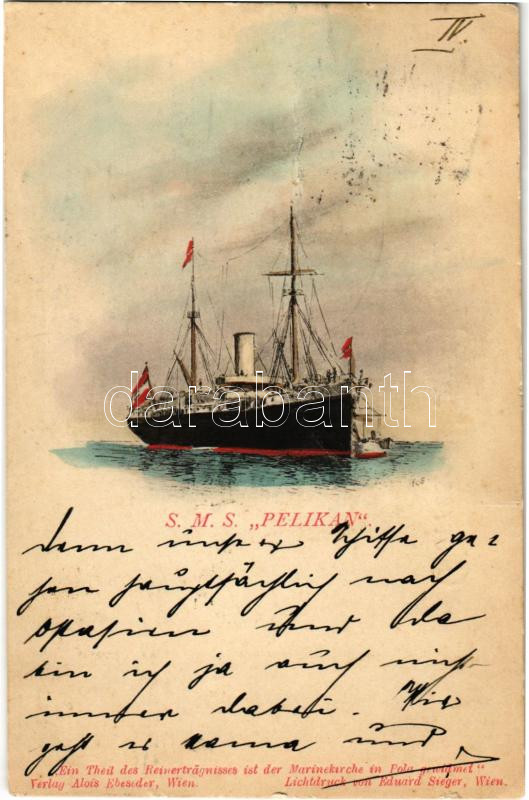 IV.
darabanth
S. M. S. „PELIKAN“.
denn unsere Schiffe ge-
hen hauptsächlich nach
Ostasien und da
bin ich ja auch nicht
immer dabei. Wie
geht es Mama und
„Ein Theil des Reinerträgnisses ist der Marinekirche in Pola gewidmet“
Verlag Alois Ebeseder, Wien. Lichtdruck von Eduard Sieger, Wien.